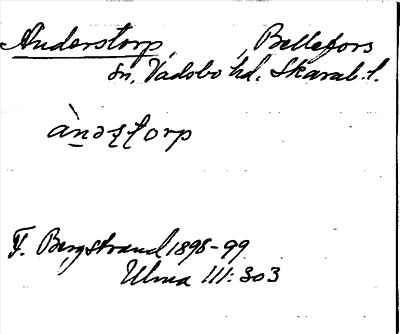 Anderstorp, , Bellefors
sn, Vadsbo hd. Skarab. l.
àṉəş̱ţorp
F. Bergstrand 1898-99
Ulma III: 303